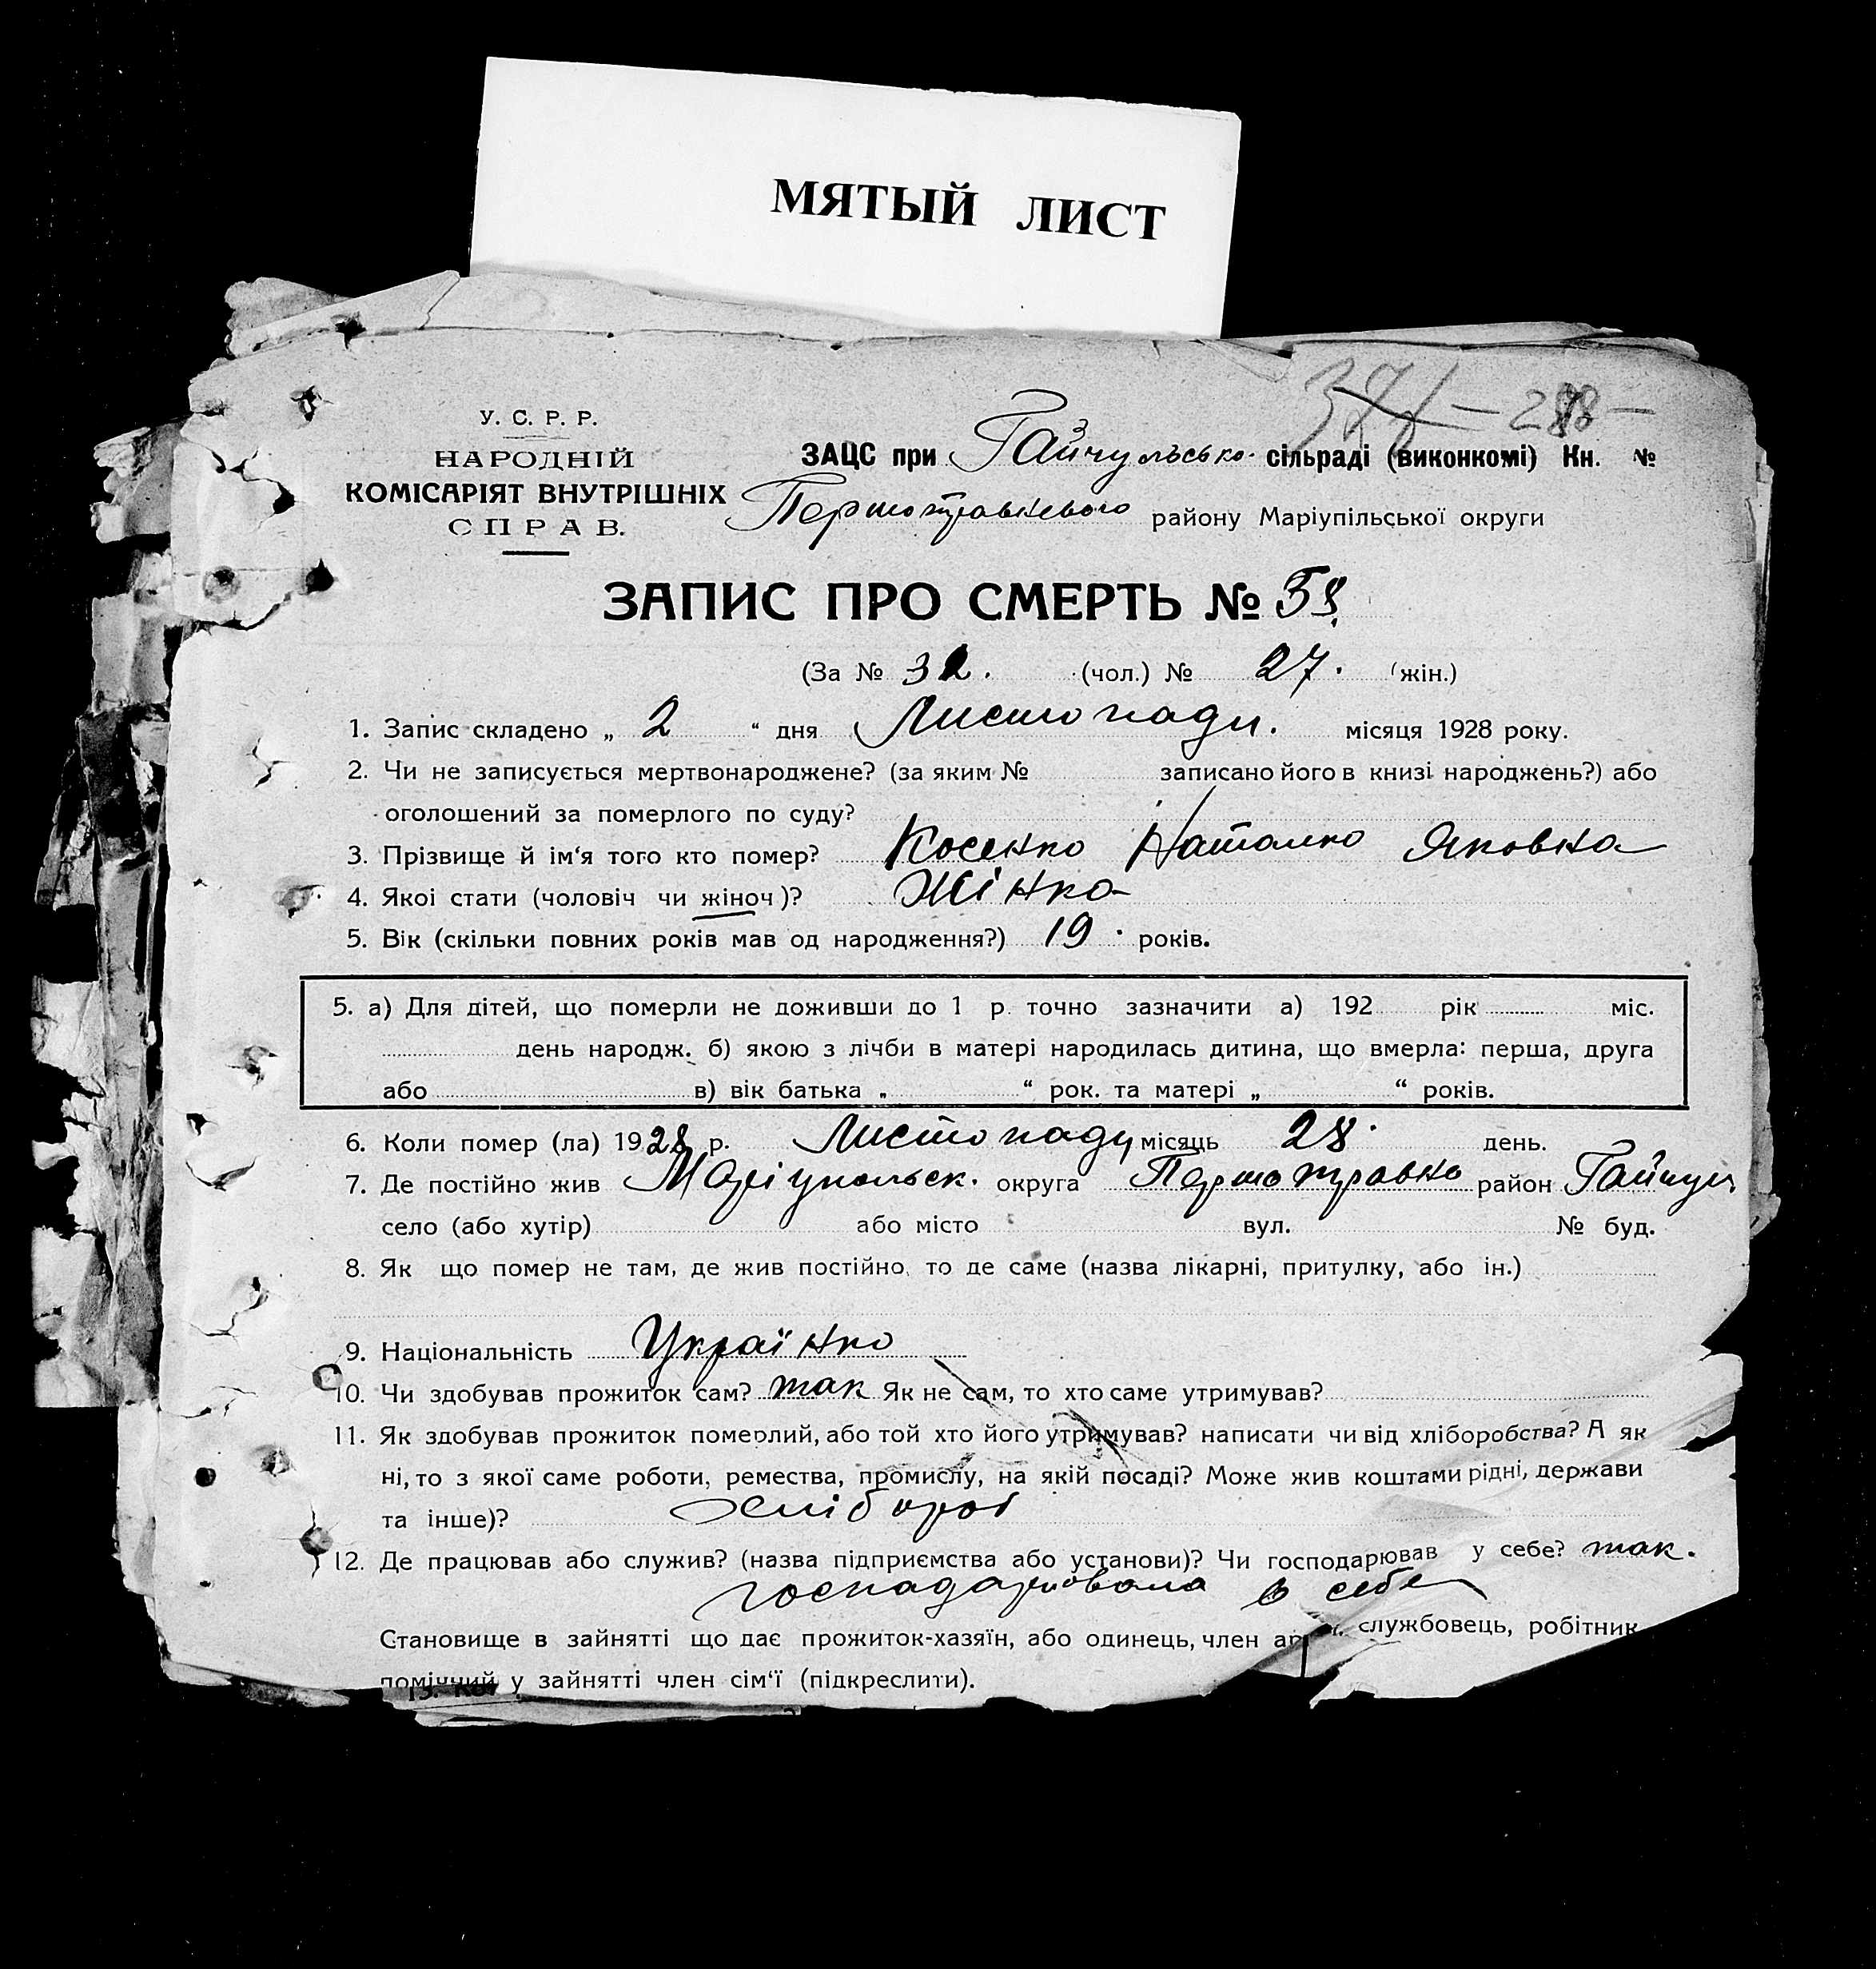 МЯТЫЙ ЛИСТ
У. С. Р. Р.
НАРОДНІЙ
КОМІСАРІЯТ ВНУТРІШНІХ
СПРАВ.
- 288 -
ЗАЦС при Гайчульсько сільраді (виконкомі) Кн. №
Першотравневого району Маріупільської округи
ЗАПИС ПРО СМЕРТЬ № 59.
(За № 32. (чол.) № 27. (жін.)
1. Запис складено „ 2 “ дня Листопади. місяця 1928 року.
2. Чи не записується мертвонароджене? (за яким № записано його в книзі народжень?) або
оголошений за померлого по суду?
3. Прізвище й ім‘я того кто помер? Косенко Наталка Яковна
4. Якоі стати (чоловіч чи жіноч)? Жінка
5. Вік (скільки повних років мав од народження?) 19. років.
5. а) Для дітей, що померли не доживши до 1 р. точно зазначити а) 192 рік міс.
день народж. б) якою з лічби в матері народилась дитина, що вмерла: перша, друга
або в) вік батька „ “ рок. та матері „ “ років.
6. Коли помер (ла) 1928 р. Листопаду місяць 28. день.
7. Де постійно жив Маріупольськ. округа Першотравно район Гайчул
село (або хутір) або місто вул. № буд.
8. Як що помер не там, де жив постійно, то де саме (назва лікарні, притулку, або ін.)
9. Національність Українка
10. Чи здобував прожиток сам? так Як не сам, то хто саме утримував?
11. Як здобував прожиток померлий, або той хто його утримував? написати чи від хліборобства? А як
ні, то з якої саме роботи, ремества, промислу, на якій посаді? Може жив коштами рідні, держави
та інше)? хлібороб
12. Де працював або служив? (назва підприємства або установи)? Чи господарював у себе? так.
господарювала в себе
Становище в зайнятті що дає прожиток-хазяїн, або одинець, член службовець, робітник
помічний у зайнятті член сім‘ї (підкреслити).